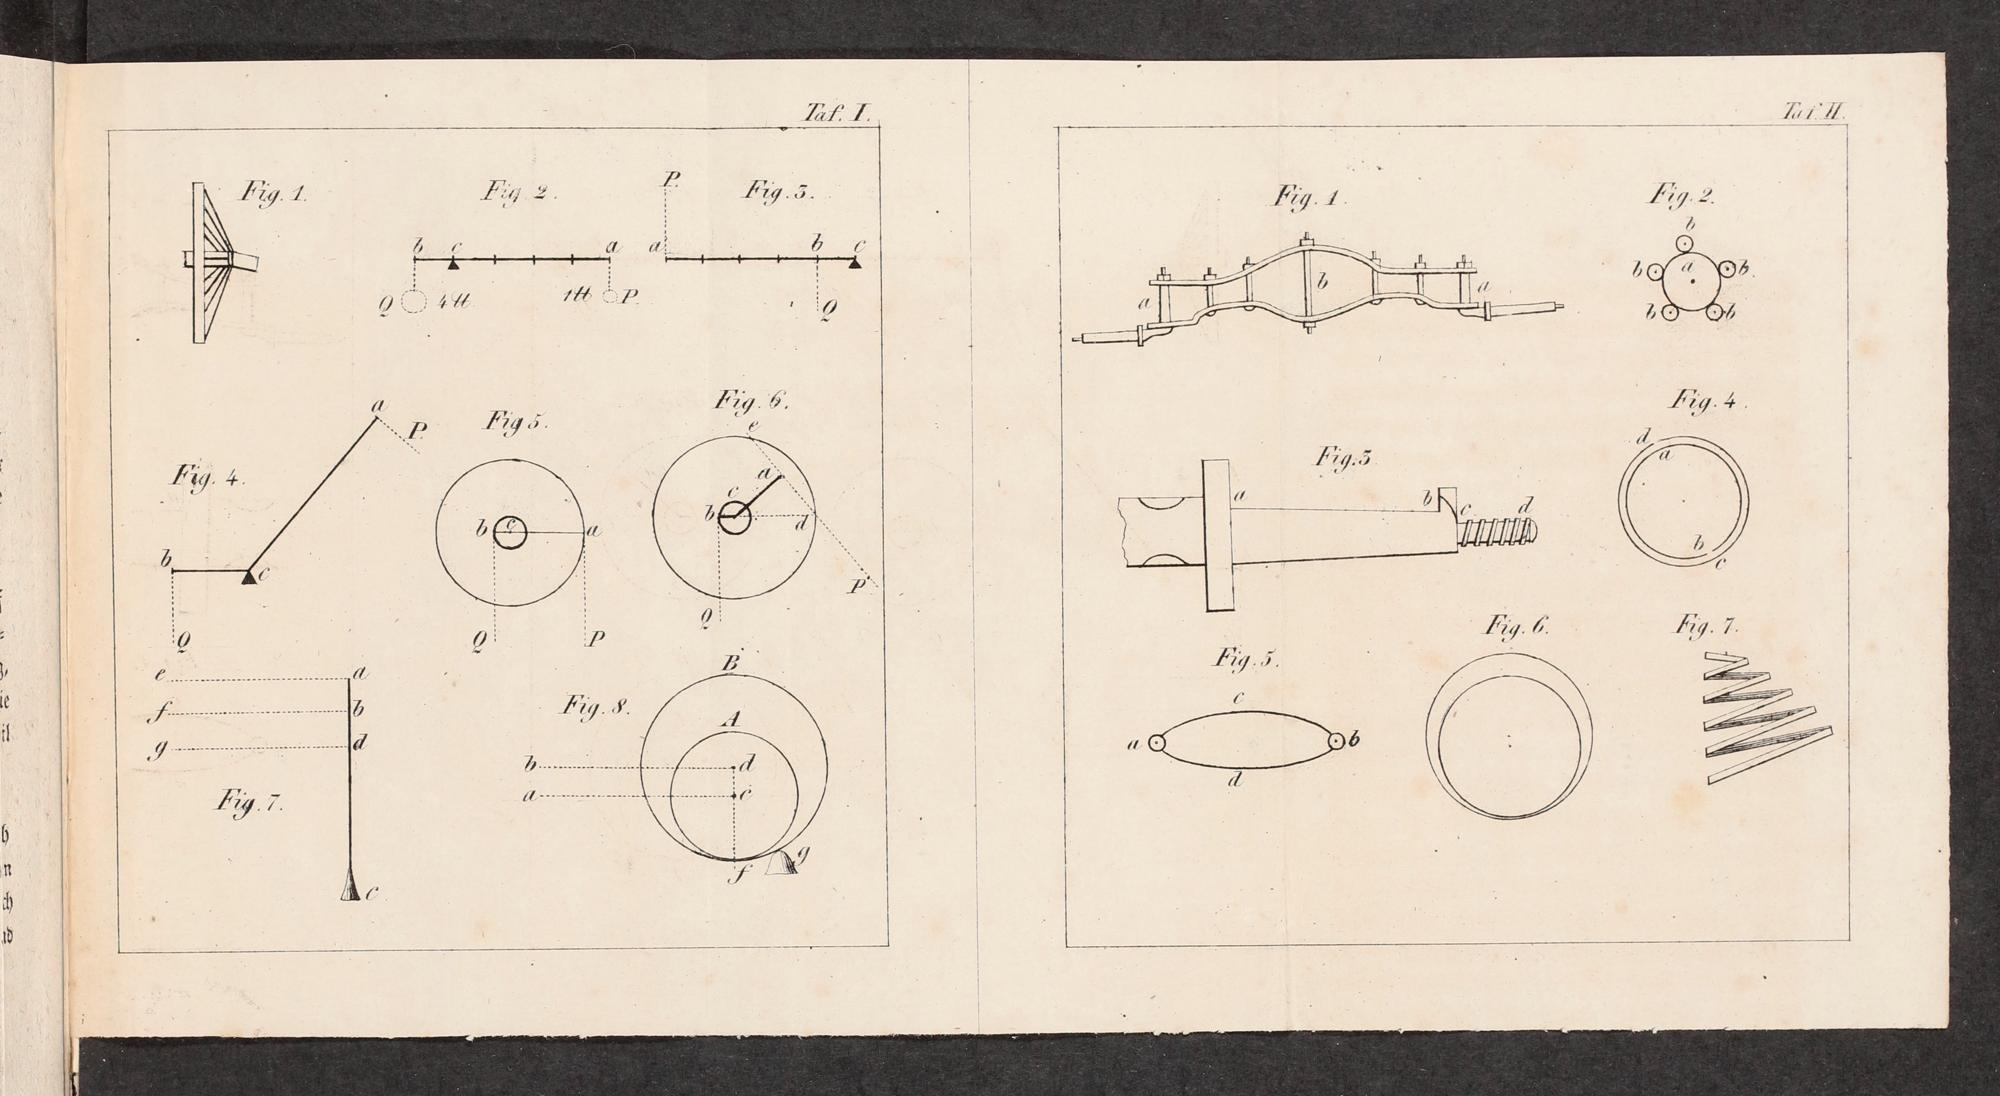 Taf. I.
Fig. 1.
Fig. 2.
P.
Fig. 3.
b c a
a b c
Q 4 ℔ 1 ℔ P.
Q
a
P.
Fig. 4.
b c
Q
Fig 5.
b c a
Q P
Fig. 6.
e
a
c
b d
P
Q
e a
f b
g d
Fig. 7.
c
B
Fig. 8.
A
b d
a c
g
f
Taf. II.
Fig. 1.
a b a
Fig. 2.
b
b a b
b b
Fig. 3
a b c d
Fig. 4.
d
a
b
c
Fig. 5.
c
a b
d
Fig. 6.
Fig. 7.